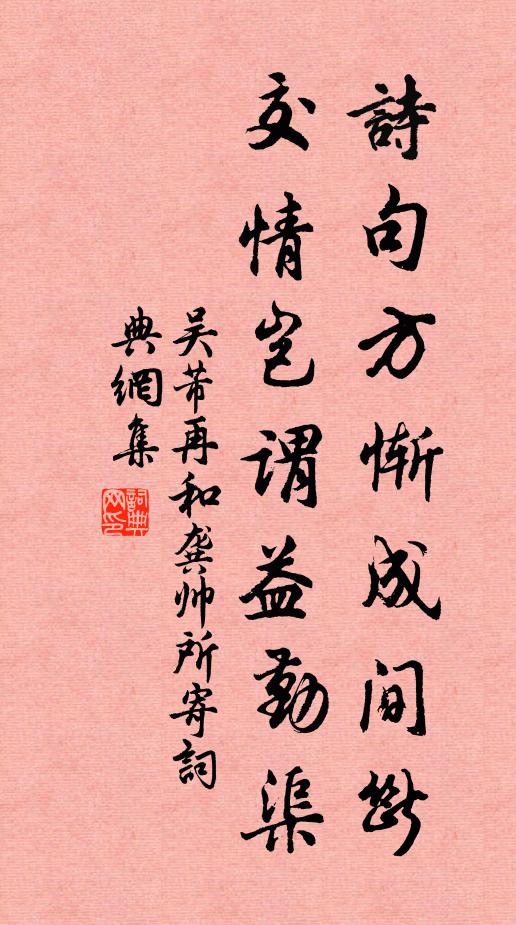 詩句方慚成间斷
交情岂謂益勤渠
吴芾再和龚帅所寄詞
典網集
詞典網印